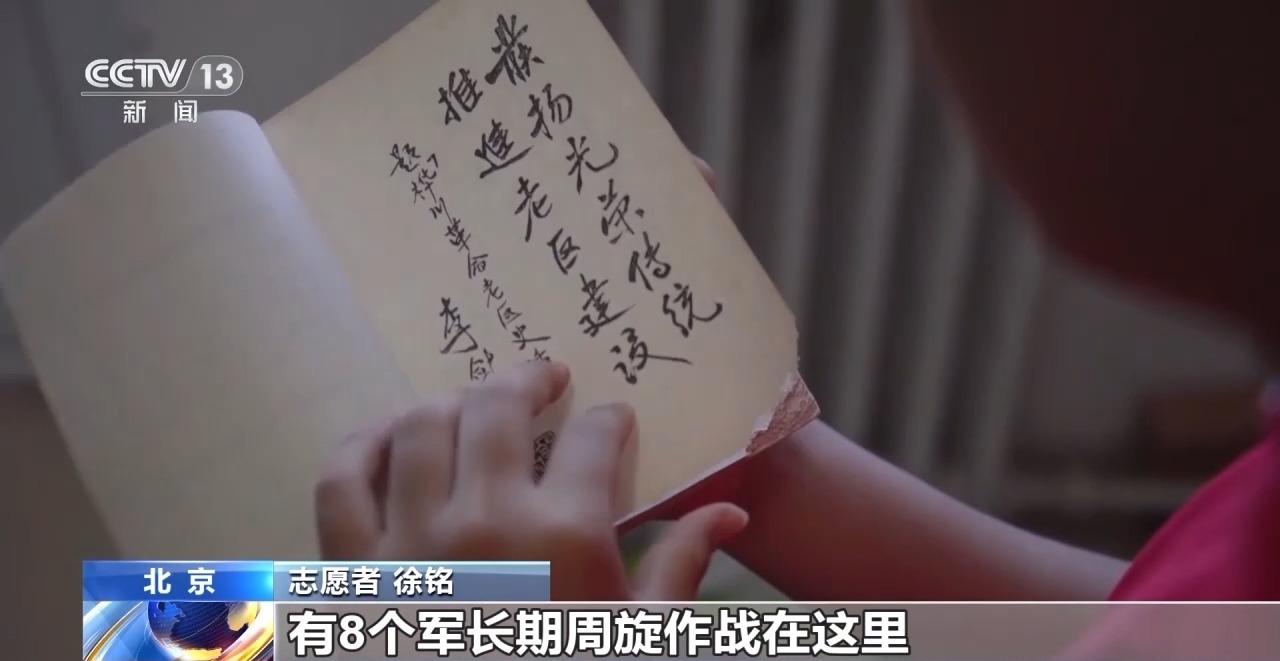 CCTV 13
新闻
發扬光荣传统
推進老区建设
题桦川革命老区史
李
北京
志愿者 徐铭
有8个军长期周旋作战在这里